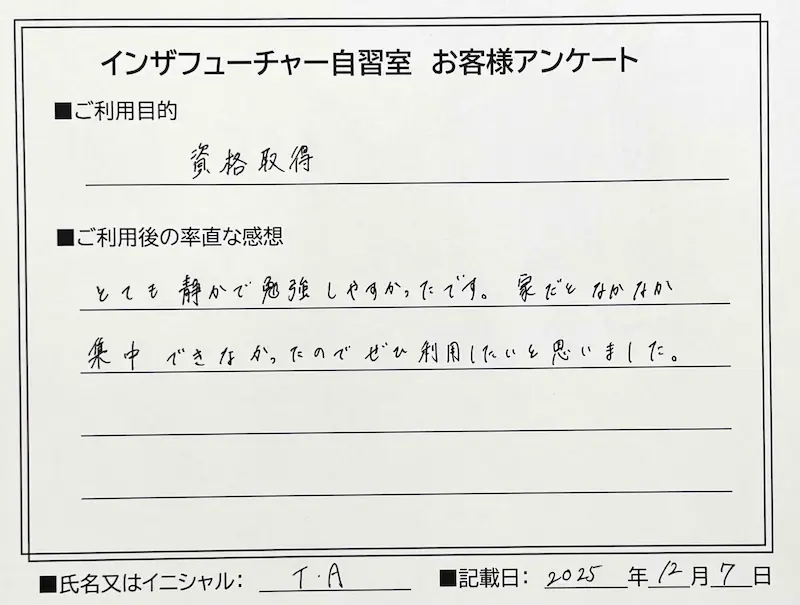 インザフューチャー自習室 お客様アンケート
■ご利用目的
資格取得
■ご利用後の率直な感想
とても静かで勉強しやすかったです。家だとなかなか
集中できなかったのでぜひ利用したいと思いました。
■氏名又はイニシャル： T.A ■記載日： 2025 年 12 月 7 日